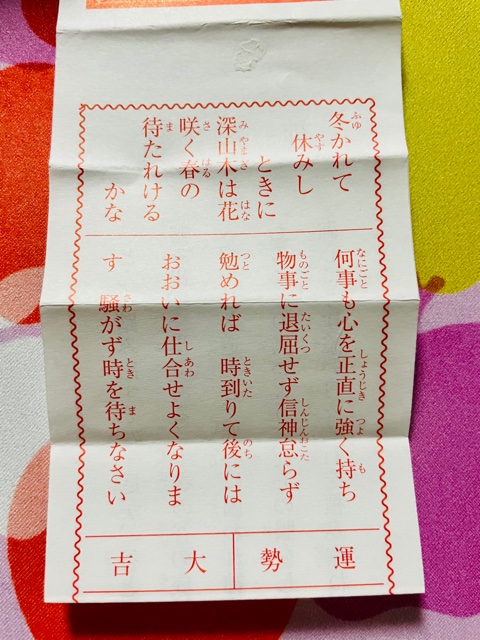 冬かれて
休みし
ときに
深山木は花
咲く春の
待たれける
かな
何事も心を正直に強く持ち
物事に退屈せず信神怠らず
勉めれば 時到りて後には
おおいに仕合せよくなりま
す 騒がず時を待ちなさい
運勢 大吉